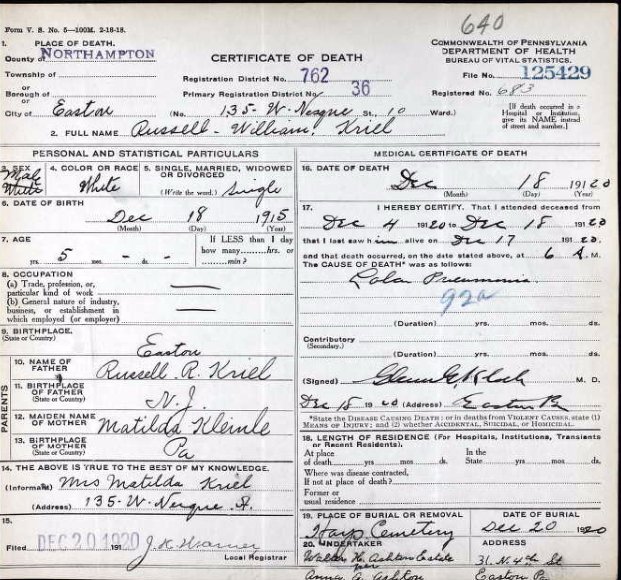 640
Form V. S. No. 5—100M. 2-18-18.
1. PLACE OF DEATH.
County of NORTHAMPTON
Township of
or
Borough of
or
City of Easton
CERTIFICATE OF DEATH
Registration District No. 762
Primary Registration District No. 36
(No. 135- W- St., 10 Ward.)
COMMONWEALTH OF PENNSYLVANIA
DEPARTMENT OF HEALTH
BUREAU OF VITAL STATISTICS.
File No. 125429
Registered No. 683
[If death occurred in a
Hospital or Institution,
give its NAME instead
of street and number.]
2. FULL NAME Russell- William, Kriel
PERSONAL AND STATISTICAL PARTICULARS
3. SEX
Male
White
4. COLOR OR RACE
White
5. SINGLE, MARRIED, WIDOWED
OR DIVORCED
(Write the word.) Single
6. DATE OF BIRTH
Dec 18 1915
(Month) (Day) (Year)
7. AGE
5 yrs. - mos. - ds.
If LESS than 1 day
how many....hrs. or
....min.?
8. OCCUPATION
(a) Trade, profession, or,
particular kind of work
(b) General nature of industry,
business, or establishment in
which employed (or employer)
9. BIRTHPLACE.
(State or Country)
Easton
PARENTS
10. NAME OF
FATHER
Russell. R. Kriel
11. BIRTHPLACE
OF FATHER
(State or Country)
N. J.
12. MAIDEN NAME
OF MOTHER
Matilda Kleinle
13. BIRTHPLACE
OF MOTHER
(State or Country)
Pa
14. THE ABOVE IS TRUE TO THE BEST OF MY KNOWLEDGE.
(Informant) Mrs Matilda Kriel
(Address) 135- W- St.
15.
Filed DEC 20 1920 191
J.K.
Local Registrar
MEDICAL CERTIFICATE OF DEATH
16. DATE OF DEATH
Dec 18 1920
(Month) (Day) (Year)
17. I HEREBY CERTIFY. That I attended deceased from
Dec 4 1920 to Dec 18 1920
that I last saw him alive on Dec 17 1920.
and that death occurred, on the date stated above, at 6 A. M.
The CAUSE OF DEATH* was as follows:
Lobar Pneumonia
92a
(Duration) yrs. mos. ds.
Contributory
(Secondary.)
(Duration) yrs. mos. ds.
(Signed) M. D.
Dec 18 1920 (Address) Easton Pa
*State the DISEASE CAUSING DEATH; or in deaths from VIOLENT CAUSES, state (1)
MEANS OF INJURY; and (2) whether ACCIDENTAL, SUICIDAL, or HOMICIDAL.
18. LENGTH OF RESIDENCE (For Hospitals, Institutions, Transients
or Recent Residents).
At place
of death yrs. mos ds.
In the
State yrs. mos. ds.
Where was disease contracted,
If not at place of death?
Former or
usual residence
19. PLACE OF BURIAL OR REMOVAL
Hays Cemetery
Dec 20 1920
20. UNDERTAKER
Walter H. Ashton Estate
per
Anna A. Ashton
ADDRESS
31. N. 4th St
Easton Pa